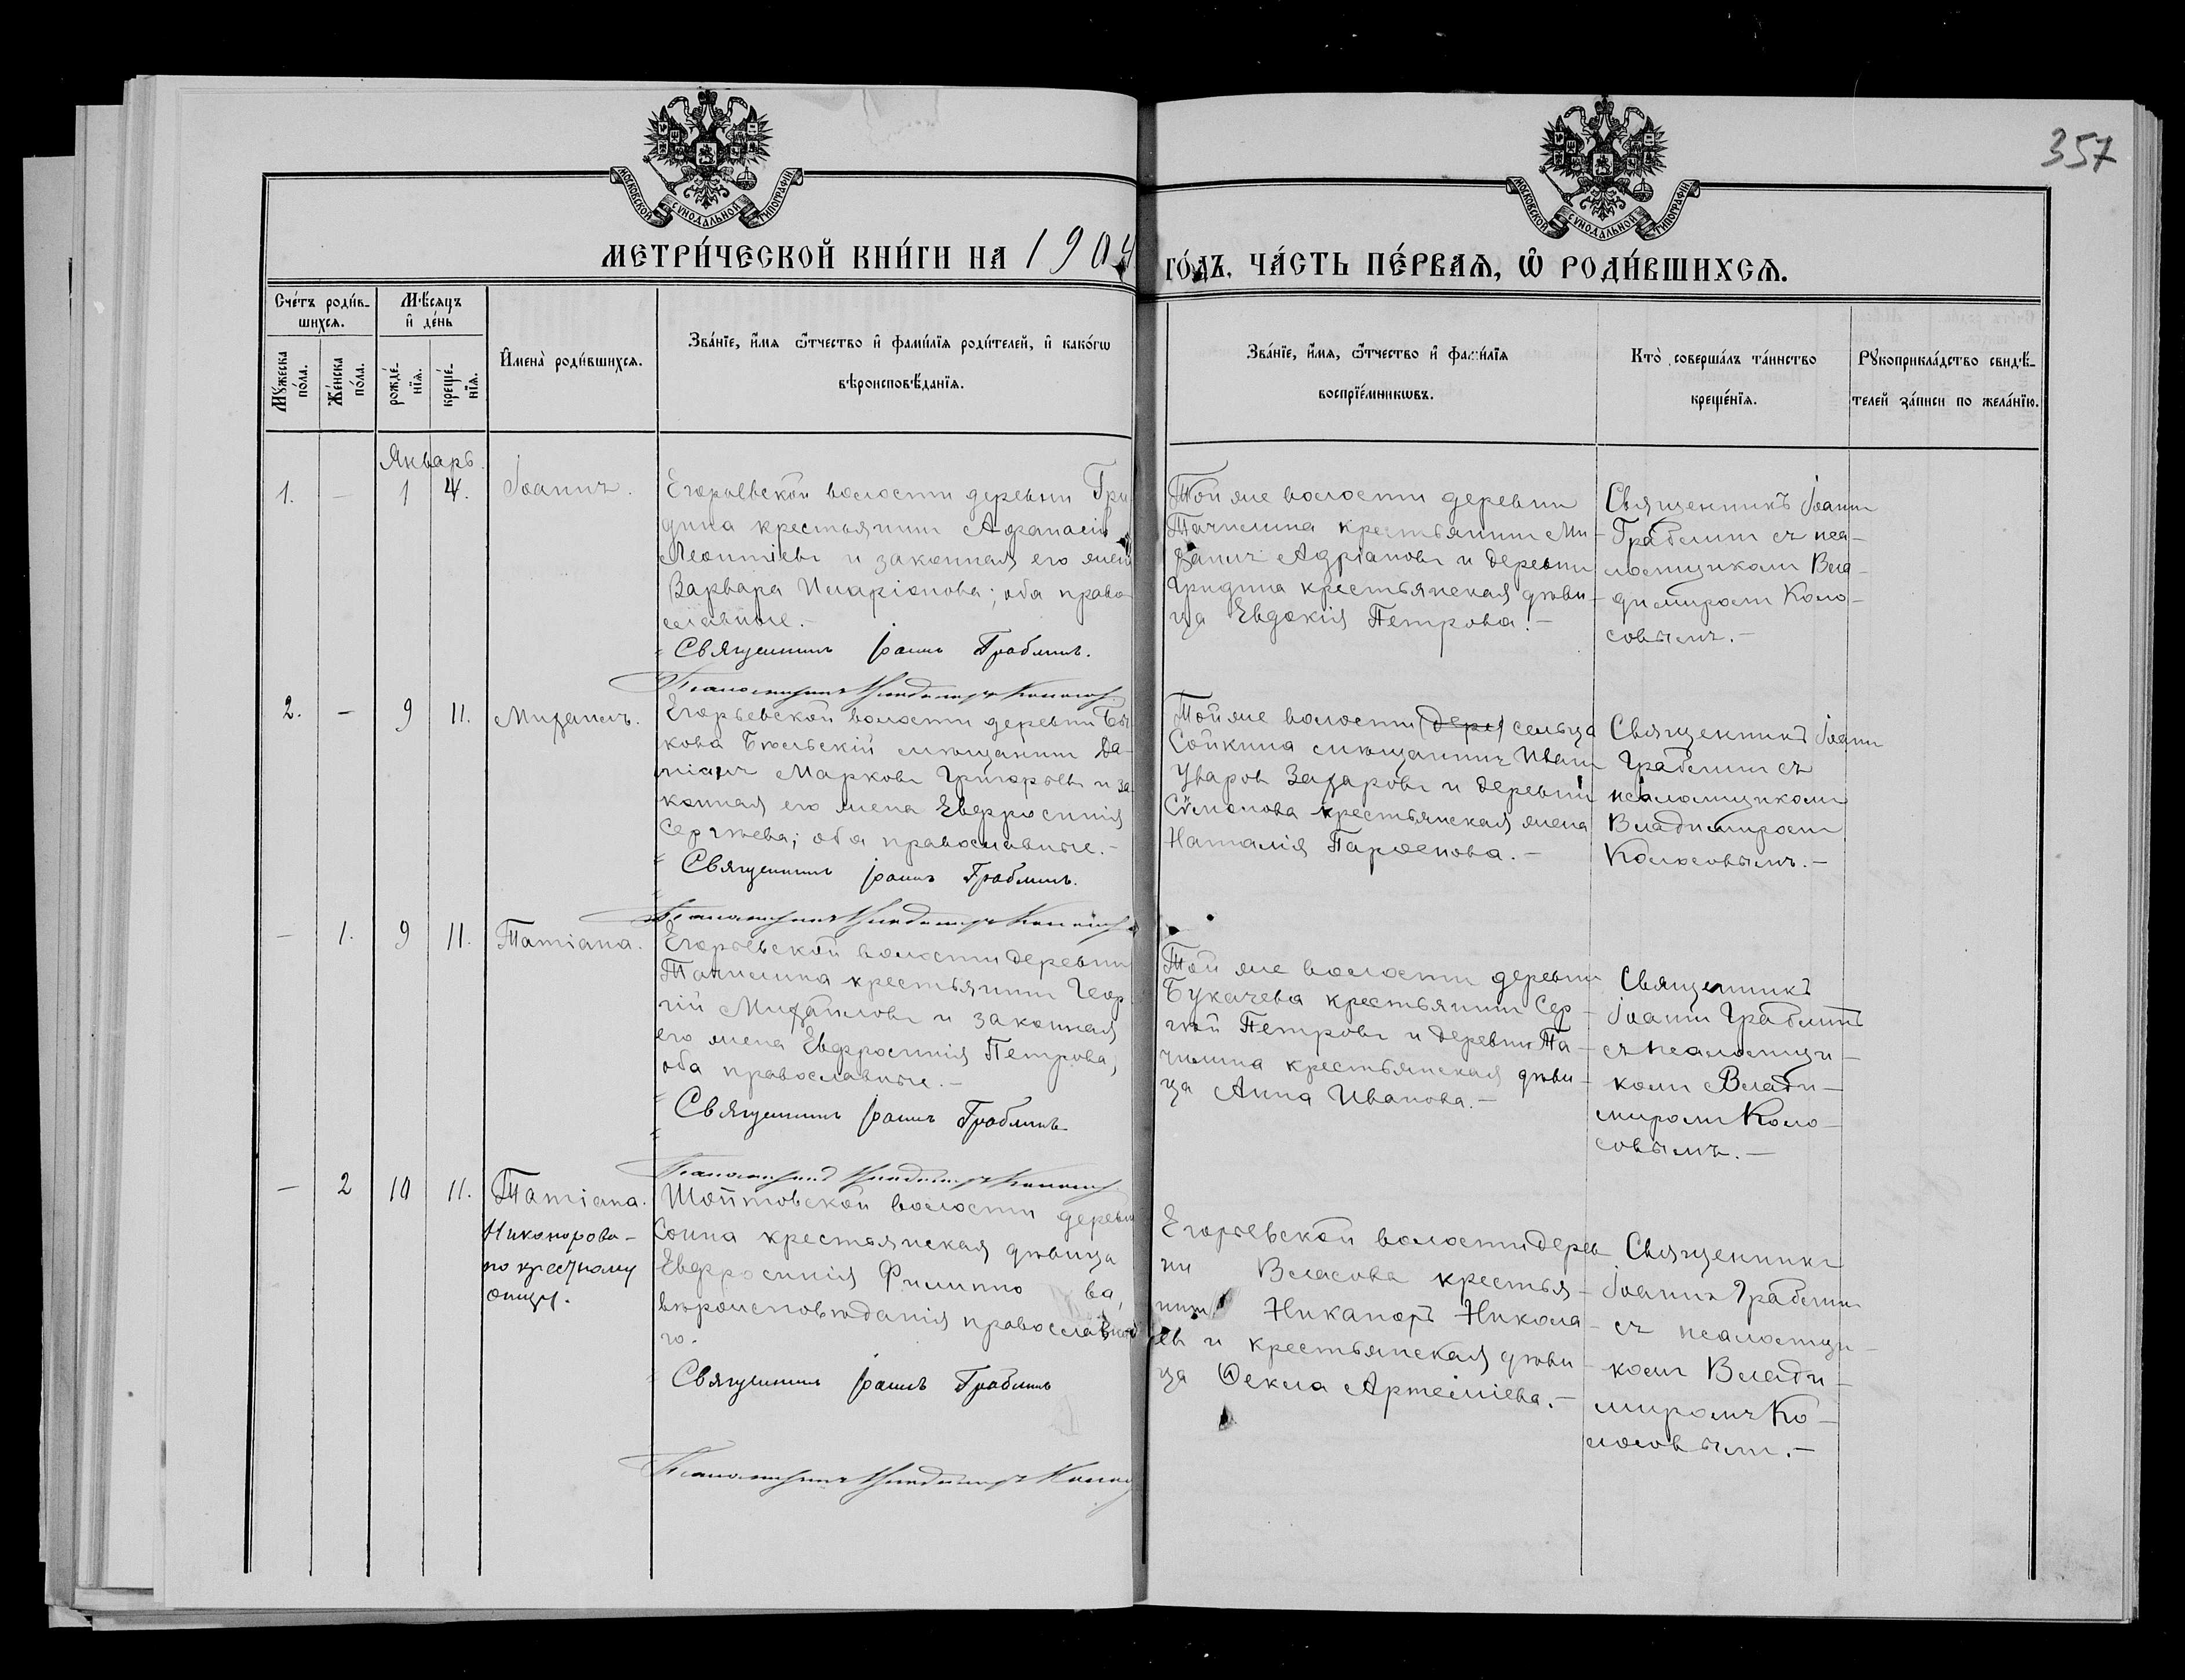 357
МОСКОВСКОЙ СУНОДАЛЬНОЙ ТИПОГРАФІИ
МОСКОВСКОЙ СУНОДАЛЬНОЙ ТИПОГРАФІИ
МЕТРИ́ЧЕСКОЙ КНИ́ГИ НА 1904 ГО́ДЪ, ЧА́СТЬ ПЕ́РВАѦ, Ѡ РОДИ́ВШИХСѦ.
Сче́тъ роди́в-
шихсѧ.
Мѣ́сѧцъ
и де́нь
Мꙋ́жеска
по́ла.
Же́нска
по́ла.
рожде́-
нїѧ.
креще́-
нїѧ.
Имена̀ роди́вшихсѧ.
Зва́нїе, и́мѧ ѿтчество и фами́лїѧ роди́телей, и како́гѡ
вѣроисповѣ́данїѧ.
Зва́нїе, и́мѧ, ѿтчество и фами́лїѧ
воспрїе́мникѡвъ.
Кто̀ соверша́лъ та́инство
креще́нїѧ.
Рꙋкоприкла́дство свидѣ́-
телей за́писи по жела́нїю.
Январь.
1. — 1 4. Іоаннъ.
Егорьевской волости деревни Гри
дина крестьянинъ Афанасій
Леонтіевъ и законная его жена
Варвара Иларіонова; оба право
славные.—
Священникъ Іоаннъ Граблинъ.
Псаломщикъ Владимиръ Колосовъ
Той же волости деревни
Тачилина крестьянинъ Ми-
хаилъ Адріановъ и деревни
Гридина крестьянская дѣви-
ца Евдокія Петрова.—
Священникъ Іоаннъ
Граблинъ съ пса-
ломщикомъ Вла-
димиромъ Коло-
совымъ.—
2. — 9 11. Михаилъ.
Егорьевской волости деревни Бы
кова Бѣльскій мѣщанинъ Да-
міанъ Марковъ Григорьевъ и за
конная его жена Евфросинія
Сергѣева; оба православные.—
Священникъ Іоаннъ Граблинъ.
Псаломщикъ Владимиръ Колосовъ
Той же волости (дере) сельца
Сойкина мѣщанинъ Иванъ
Уваровъ Захаровъ и деревни
Сѵмонова крестьянская жена
Наталія Парѳенова.—
Священникъ Іоаннъ
Граблинъ съ
псаломщикомъ
Владимиромъ
Колосовымъ.—
— 1. 9 11. Татіана.
Егорьевской волости деревни
Тачилина крестьянинъ Геор
гій Михаиловъ и законная
его жена Евфросинія Петрова;
оба православные.—
Священникъ Іоаннъ Граблинъ
Псаломщикъ Владимиръ Колосовъ
Той же волости деревни
Букачева крестьянинъ Сер-
гѣй Петровъ и деревни Та-
чилина крестьянская дѣви-
ца Анна Иванова.—
Священникъ
Іоаннъ Граблинъ
съ псаломщи-
комъ Влади-
миромъ Коло-
совымъ.—
— 2 10 11. Татіана.
Никанорова-
по крестному
отцу.
Шоптовской волости деревни
Сонна крестьянская дѣвица
Евфросинія Филиппо ва,
вѣроисповѣданія православна
го.
Священникъ Іоаннъ Граблинъ
Псаломщикъ Владимиръ Колосовъ
Егорьевской волости дерев
ни Власова крестья-
нинъ Никаноръ Никола-
евъ и крестьянская дѣви-
ца Ѳекла Артеміева.—
Священникъ
Іоаннъ Граблинъ
съ псаломщи-
комъ Влади-
миромъ Ко-
лосовымъ.—